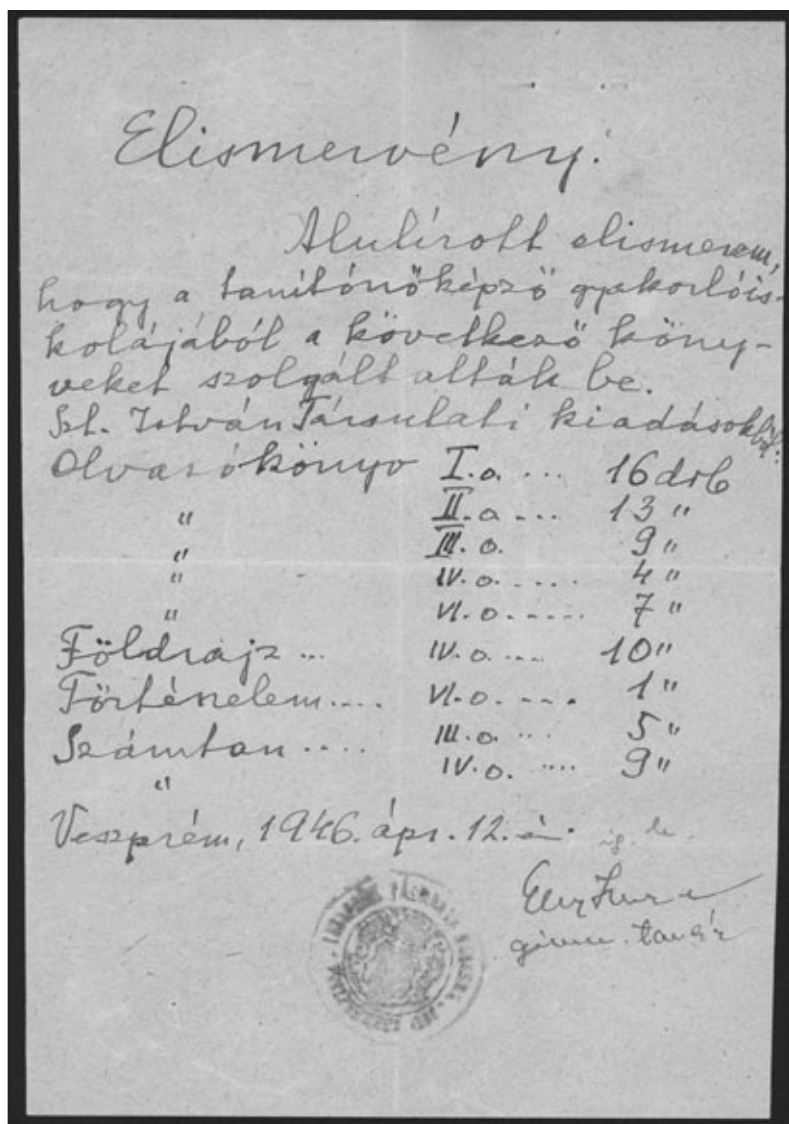 Elismervény.
Alulírott elismerem,
hogy a tanítónőképző gyakorlóis-
kolájából a következő köny-
veket szolgáltatták be.
Szt. István Társulati kiadásokból:
Olvasókönyv I. o. ... 16 drb
" II. o. ... 13 "
" III. o. 9 "
" IV. o. ..... 4 "
" VI. o. ..... 7 "
Földrajz ... IV. o. .... 10 "
Történelem .... VI. o. .... 1 "
Számtan .... III. o. ... 5 "
" IV. o. .... 9 "
Veszprém, 1946. ápr. 12.-én.
gimn. tanár